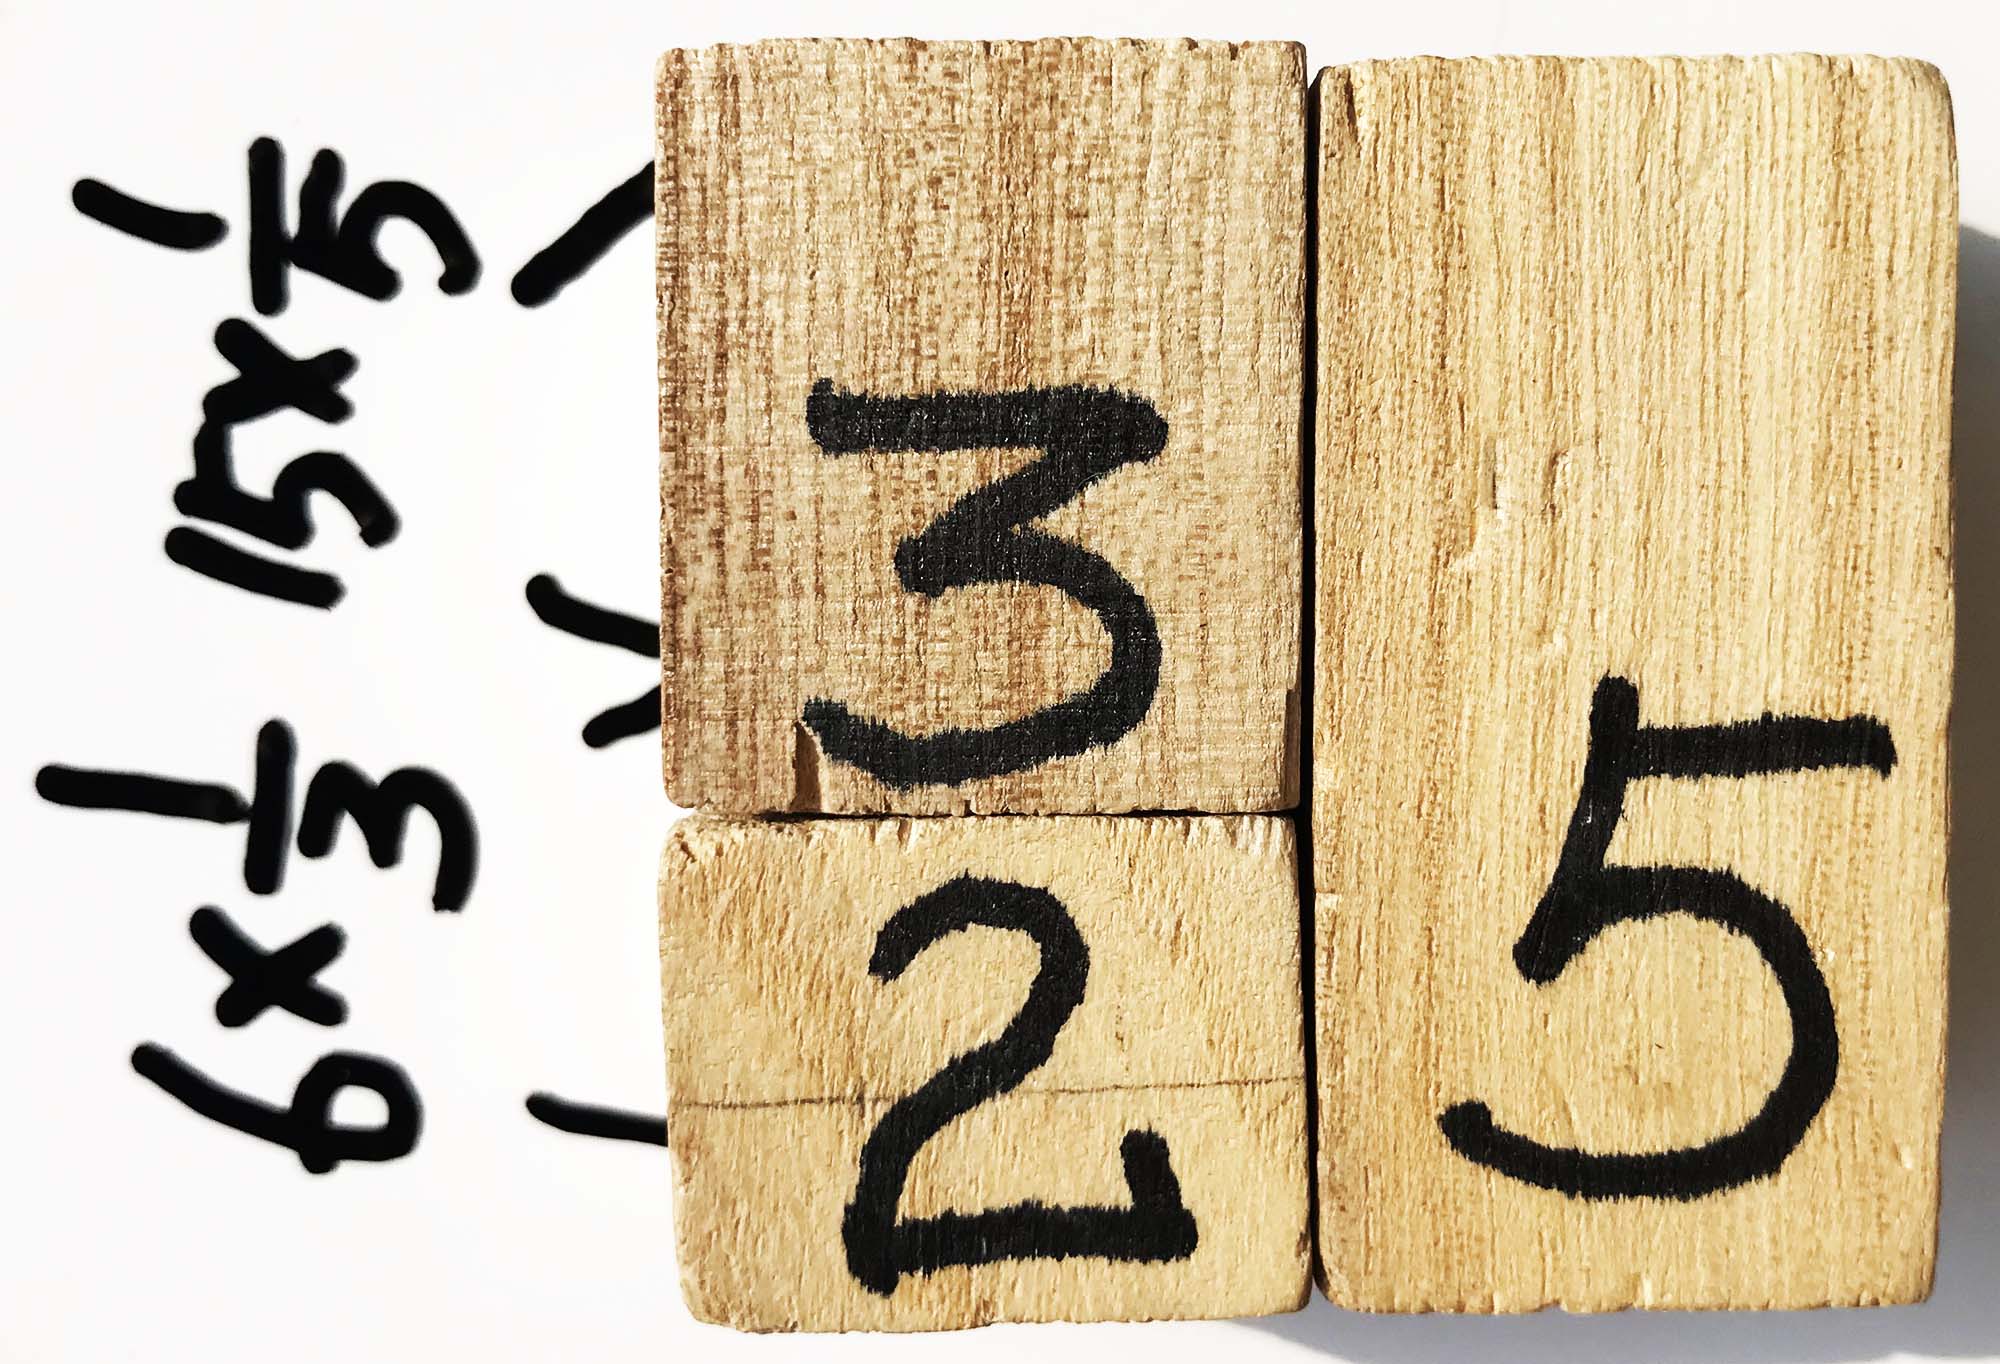 6 x 1/3 15 x 1/5
3
2
5